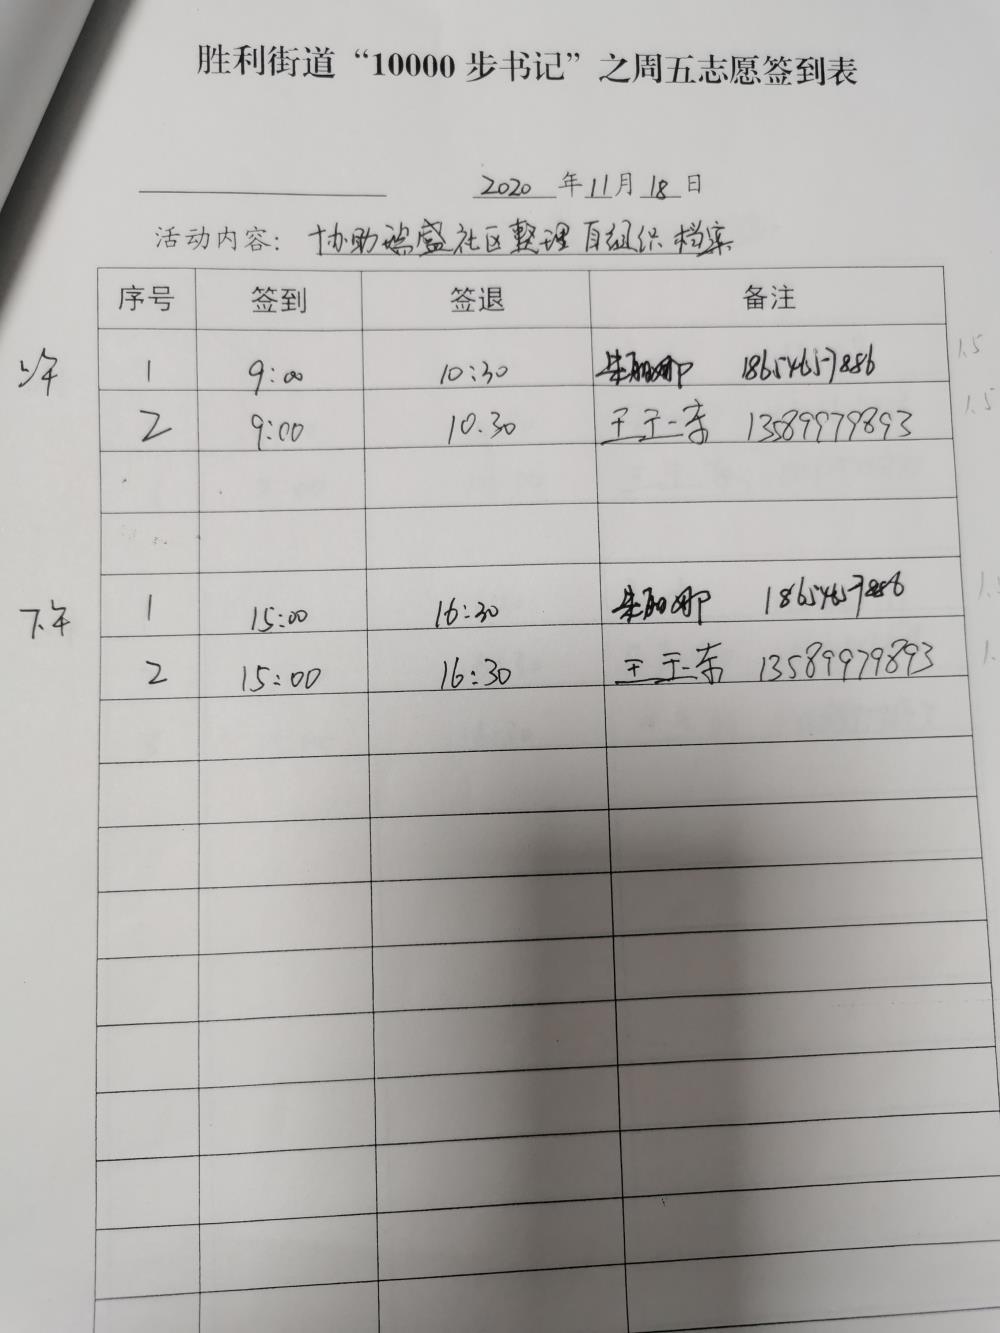 胜利街道“10000步书记”之周五志愿签到表
2020年11月18日
活动内容：协助瑞盛社区整理自组织档案
序号 签到 签退 备注
上午 1 9:00 10:30 18654657886 1.5
2 9:00 10.30 王玉东 13589979893 1.5
下午 1 15:00 16:30 18654657886
2 15:00 16:30 王玉东 13589979893